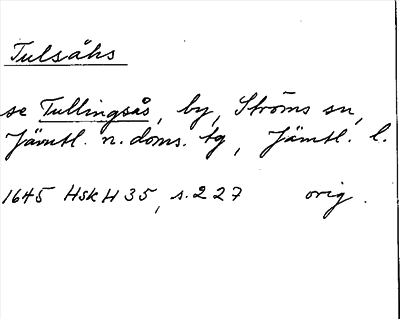 Tulsåhs
se Tullingsås, by, Ströms sn,
Jämtl. n. doms. tg, Jämtl. l.
1645 Hsk H 35, s. 227 orig.